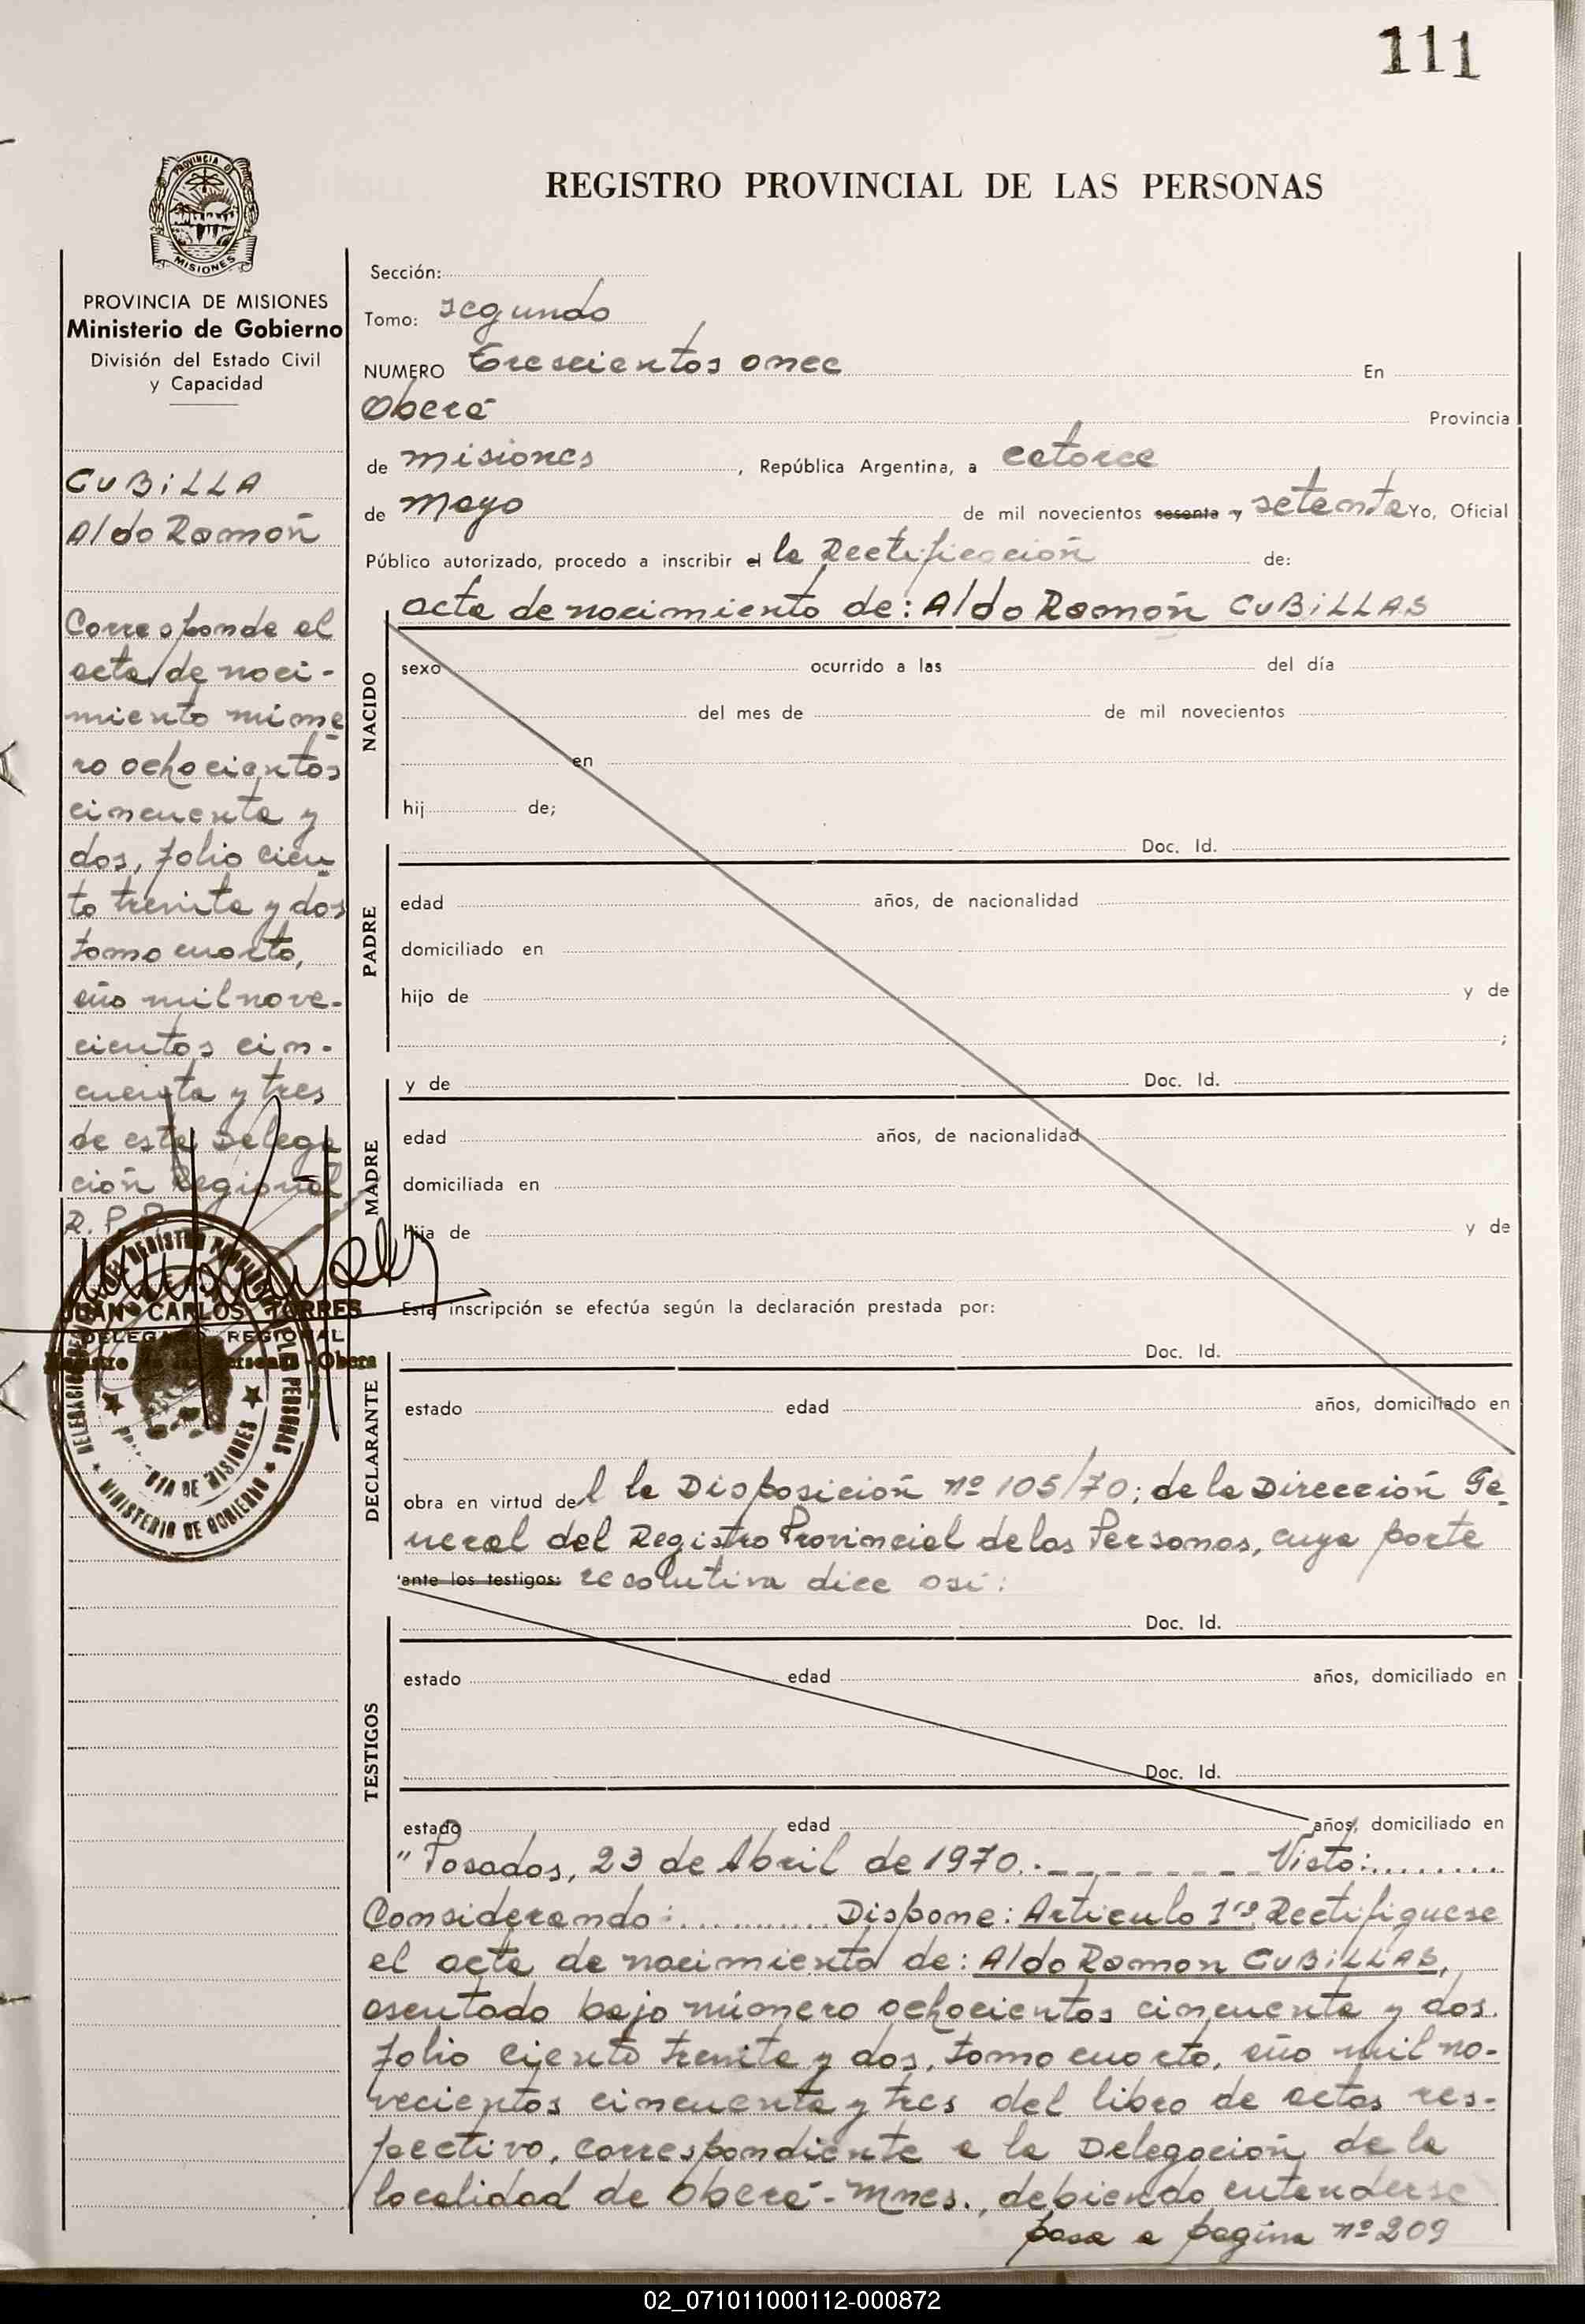 111
PROVINCIA DE
MISIONES
REGISTRO PROVINCIAL DE LAS PERSONAS
PROVINCIA DE MISIONES
Ministerio de Gobierno
División del Estado Civil
y Capacidad
CUBILLA
Aldo Ramón
Corresponde al
acta de naci-
miento núme
ro ochocientos
cincuenta y
dos, folio cien
to treinta y dos
tomo cuarto,
año mil nove-
cientos cin-
cuenta y tres
de esta Delega
ción Regional
R. P. P.
JUAN CARLOS TORRES
DELEGADO REGIONAL
Obera
MINISTERIO DE GOBIERNO
Sección:
Tomo: segundo
NUMERO Trescientos once En
Oberá Provincia
de misiones, República Argentina, a catorce
de Mayo de mil novecientos sesenta y setenta Yo, Oficial
Público autorizado, procedo a inscribir el la Rectificación de:
acta de nacimiento de: Aldo Ramón CUBILLAS
NACIDO
sexo ocurrido a las del día
del mes de de mil novecientos
en
hij de;
Doc. Id.
PADRE
edad años, de nacionalidad
domiciliado en
hijo de y de
;
y de Doc. Id.
MADRE
edad años, de nacionalidad
domiciliada en
hija de y de
Esta inscripción se efectúa según la declaración prestada por:
Doc. Id.
DECLARANTE
estado edad años, domiciliado en
obra en virtud del la Disposición nº 105/70; de la Dirección Ge
neral del Registro Provincial de las Personas, cuya parte
ante los testigos: resolutiva dice así:
Doc. Id.
TESTIGOS
estado edad años, domiciliado en
Doc. Id.
estado edad años, domiciliado en
"Posadas, 23 de Abril de 1970.- - - - - - - Visto:........
Considerando:........... Dispone: Artículo 1ro Rectifíquese
el acta de nacimiento de: Aldo Ramon CUBILLAS,
asentado bajo número ochocientos cincuenta y dos.
folio ciento treinta y dos, tomo cuarto, año mil no-
vecientos cincuenta y tres del libro de actas res-
pectivo, correspondiente a la Delegación de la
localidad de Oberá - Mnes., debiendo entenderse
pasa a pagina nº 209
02_071011000112-000872